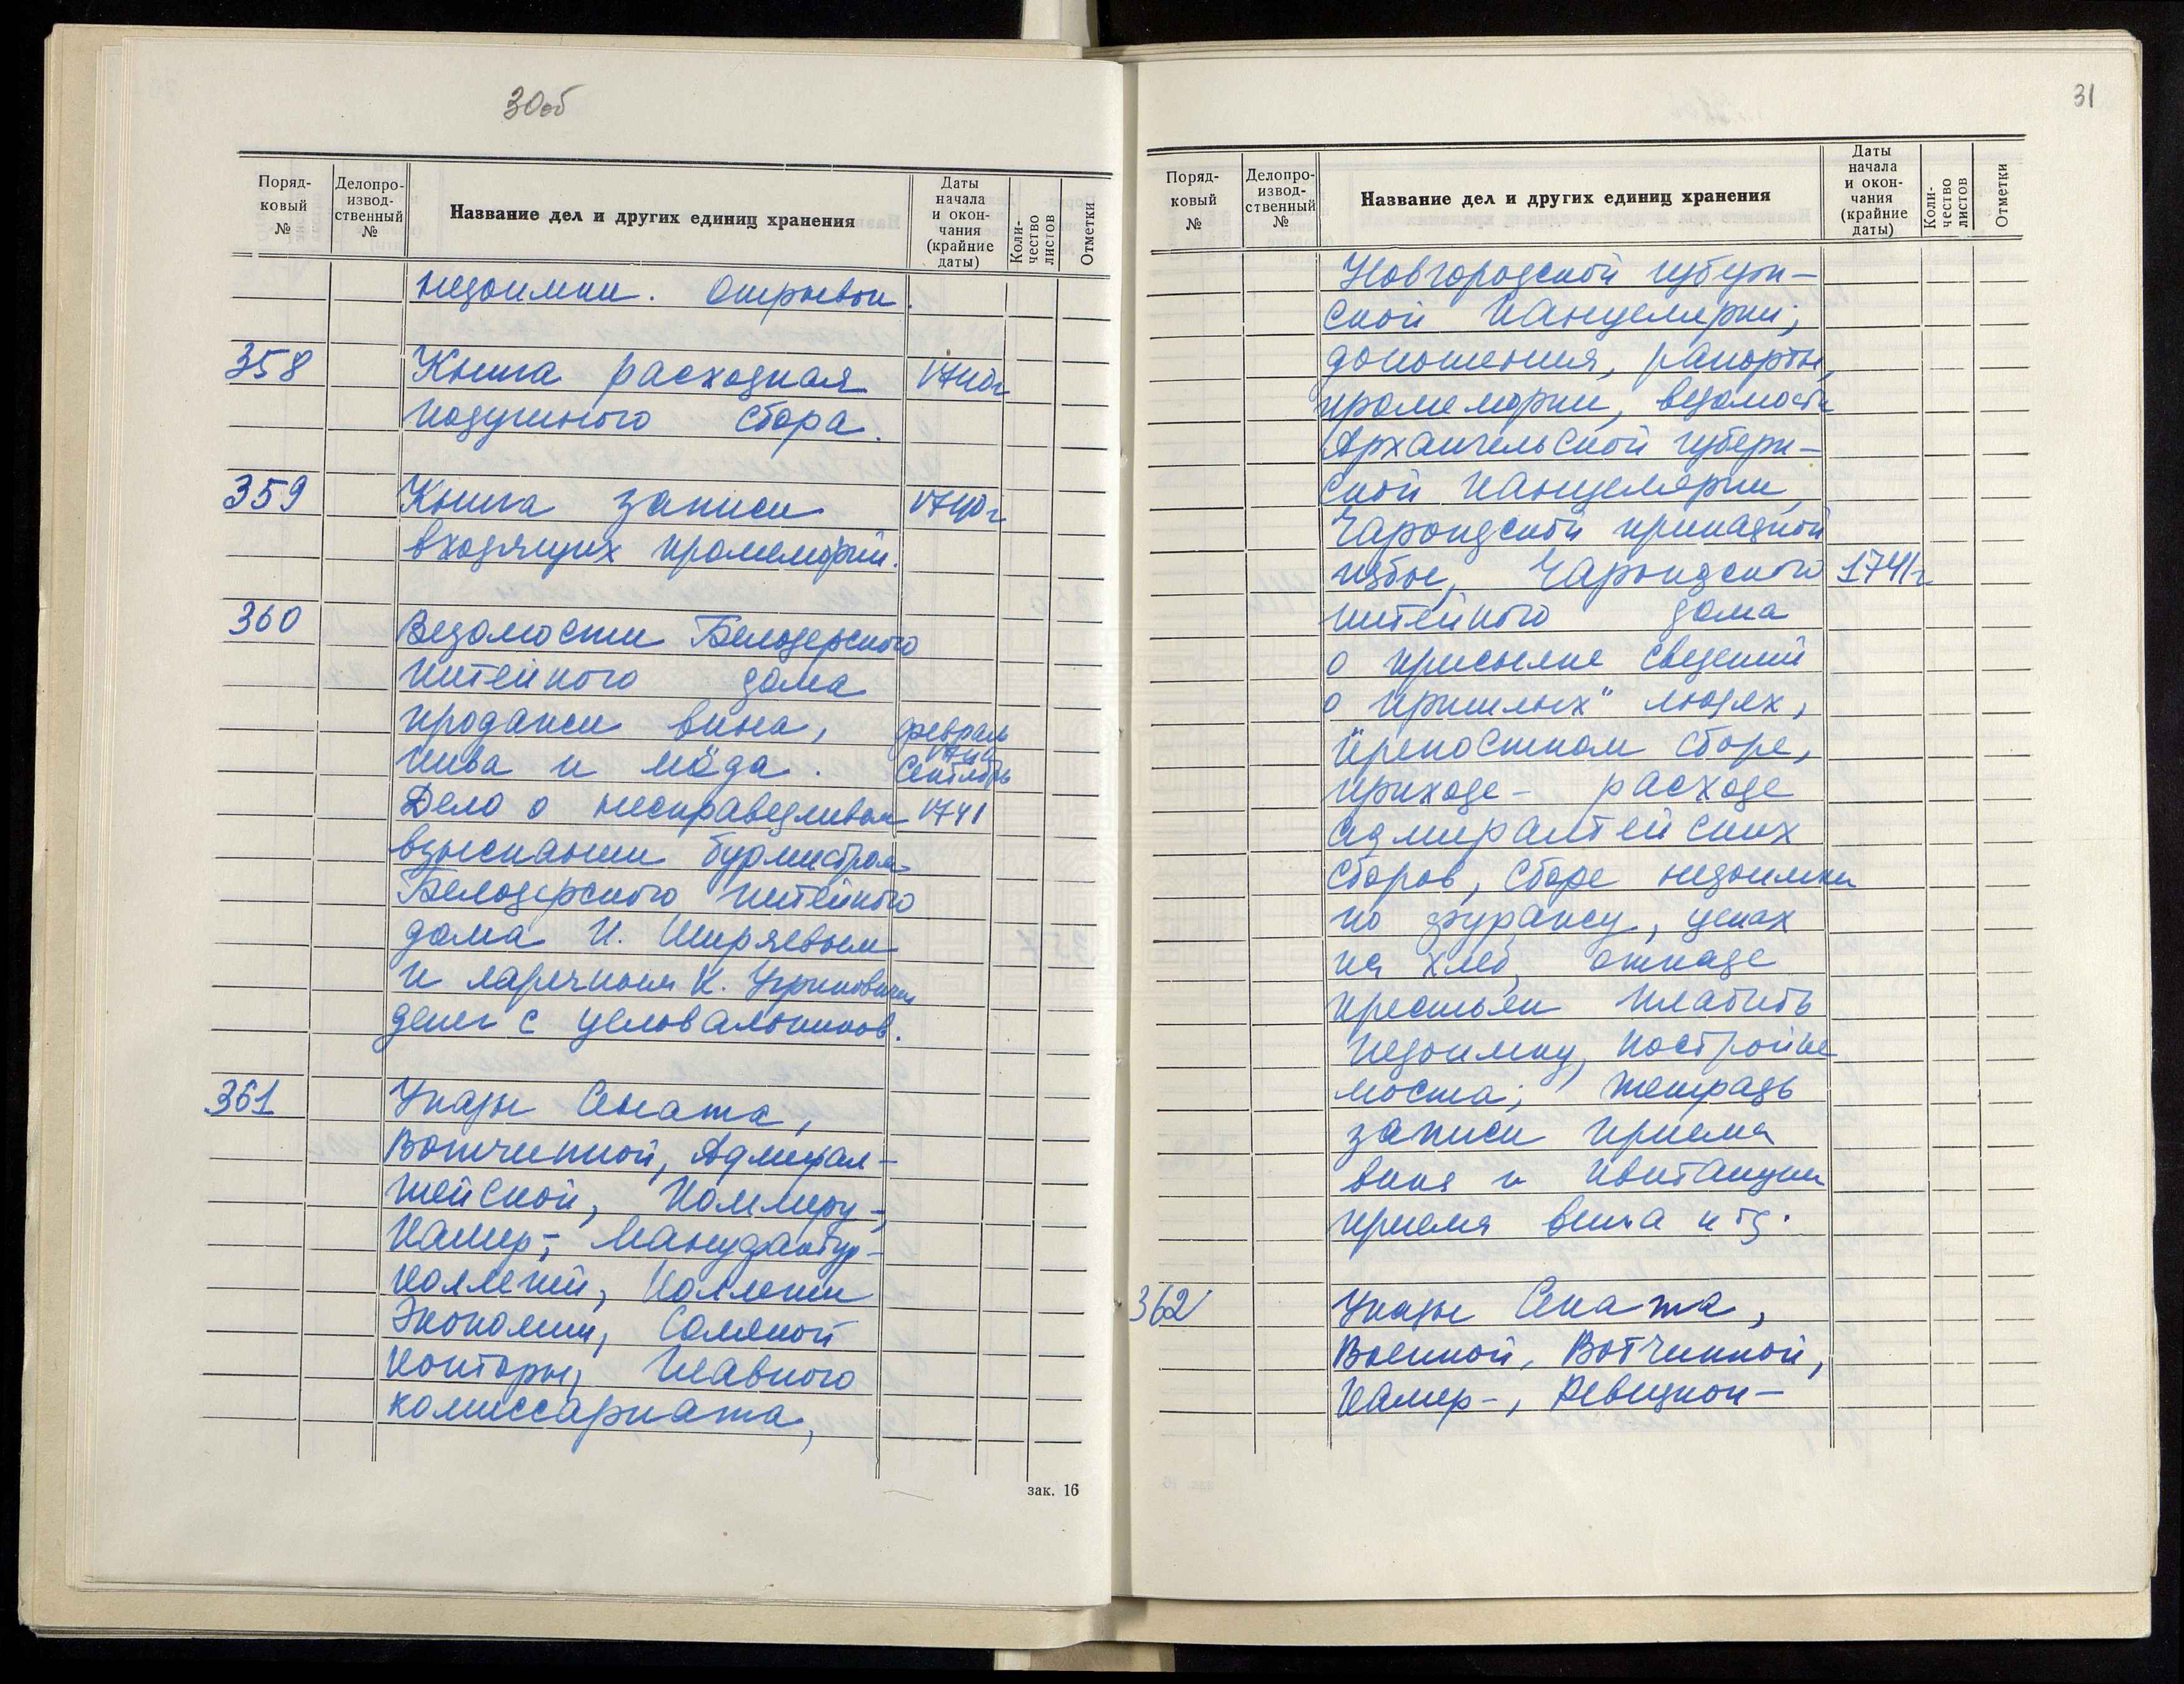 30об
Поряд-
ковый
№
Делопро-
извод-
ственный
№
Название дел и других единиц хранения
Даты
начала
и окон-
чания
(крайние
даты)
Коли-
чество
листов
Отметки
недоимки. Отрывок.
358 Книга расходная 1740г
подушного сбора.
359 Книга записи 1740г
входящих промеморий.
360 Ведомости Белозерского
питейного дома
продажи вина, февраль
1741
пива и мёда. Сентябрь
Дело о несправедливом 1741
взыскании бурмистром
Белозерского питейного
дома И. Ширяевым
и ларечным К.
денег с целовальников.
361 Указы Сената,
Вотчинной, Адмирал-
тейской, Коммерц-,
Камер-, Мануфактур-
коллегий, Коллегии
Экономии, Соляной
конторы, Главного
комиссариата,
зак. 16
31
Поряд-
ковый
№
Делопро-
извод-
ственный
№
Название дел и других единиц хранения
Даты
начала
и окон-
чания
(крайние
даты)
Коли-
чество
листов
Отметки
Новгородской губерн-
ской канцелярии;
доношения, рапорты,
промемории, ведомости
Архангельской губерн-
ской канцелярии,
Чарондской приказной
избы, Чарондского 1741г
питейного дома
о присылке сведений
о "пришлых" людях,
крепостном сборе,
приходе- расходе
адмиралтейских
сборов, сборе недоимки
по фуражу, ценах
на хлеб, отказе
крестьян платить
недоимку, постройке
моста; тетрадь
записи приема
вина и квитанции
приема вина и тд.
362 Указы Сената,
Военной, Вотчинной,
Камер-, Ревизион-